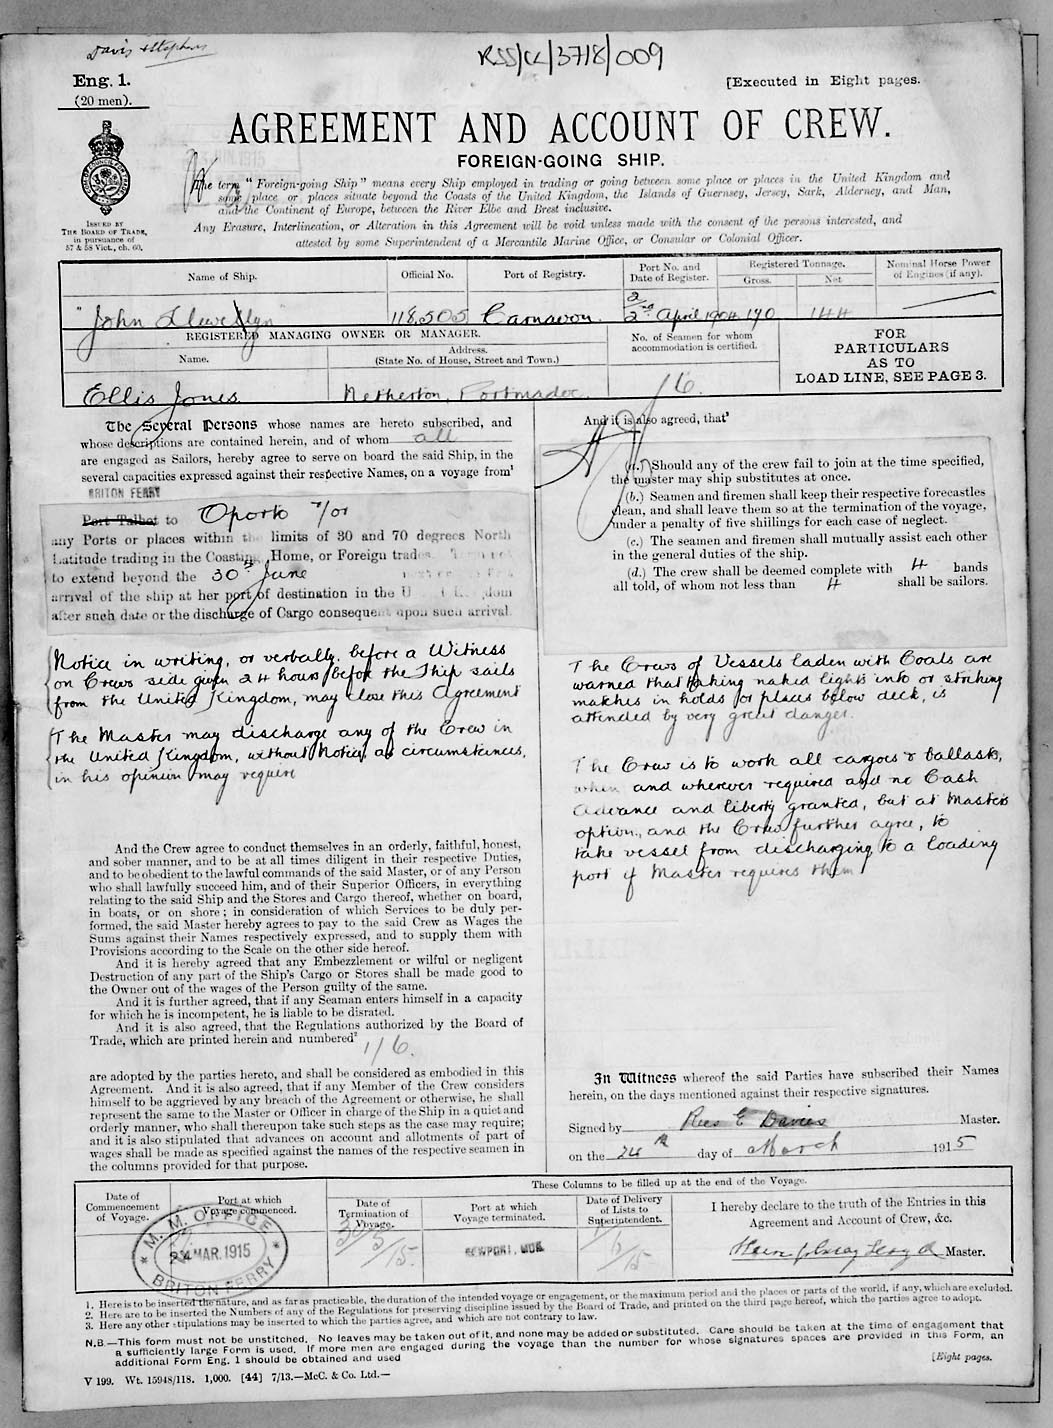 Davis & Stephens
RSS/CL/3718/009
Eng. 1.
(20 men).
[Executed in Eight pages.
AGREEMENT AND ACCOUNT OF CREW.
FOREIGN-GOING SHIP.
ISSUED BY
THE BOARD OF TRADE,
in pursuance of
57 & 58 Vict., ch. 60.
The term "Foreign-going Ship" means every Ship employed in trading or going between some place or places in the United Kingdom and
some place or places situate beyond the Coasts of the United Kingdom, the Islands of Guernsey, Jersey, Sark, Alderney, and Man,
and the Continent of Europe, between the River Elbe and Brest inclusive.
Any Erasure, Interlineation, or Alteration in this Agreement will be void unless made with the consent of the persons interested, and
attested by some Superintendent of a Mercantile Marine Office, or Consular or Colonial Officer.
Name of Ship.
Official No.
Port of Registry.
Port No. and
Date of Register.
Registered Tonnage.
Gross.
Net.
Nominal Horse Power
of Engines (if any).
"John Llewellyn"
118,505
Carnavon
2
2nd April 1904
190
144
REGISTERED MANAGING OWNER OR MANAGER.
Name.
Address.
(State No. of House, Street and Town.)
No. of Seamen for whom
accommodation is certified.
FOR
PARTICULARS
AS TO
LOAD LINE, SEE PAGE 3.
Ellis Jones
Netherton, Portmadoc
16.
The Several Persons whose names are hereto subscribed, and
whose descriptions are contained herein, and of whom all
are engaged as Sailors, hereby agree to serve on board the said Ship, in the
several capacities expressed against their respective Names, on a voyage from¹
BRITON FERRY
Port Talbot to Oporto &/or
any Ports or places within the limits of 30 and 70 degrees North
Latitude trading in the Coasting, Home, or Foreign trades.
to extend beyond the 30th June
arrival of the ship at her port of destination in the
after such date or the discharge of Cargo consequent upon such arrival.
Notice in writing, or verbally, before a Witness
on Crews side given 24 hours before the Ship sails
from the United Kingdom, may close this Agreement
The Master may discharge any of the Crew in
the United Kingdom, without Notice, as circumstances,
in his opinion may require
And the Crew agree to conduct themselves in an orderly, faithful, honest,
and sober manner, and to be at all times diligent in their respective Duties,
and to be obedient to the lawful commands of the said Master, or of any Person
who shall lawfully succeed him, and of their Superior Officers, in everything
relating to the said Ship and the Stores and Cargo thereof, whether on board,
in boats, or on shore; in consideration of which Services to be duly per-
formed, the said Master hereby agrees to pay to the said Crew as Wages the
Sums against their Names respectively expressed, and to supply them with
Provisions according to the Scale on the other side hereof.
And it is hereby agreed that any Embezzlement or wilful or negligent
Destruction of any part of the Ship's Cargo or Stores shall be made good to
the Owner out of the wages of the Person guilty of the same.
And it is further agreed, that if any Seaman enters himself in a capacity
for which he is incompetent, he is liable to be disrated.
And it is also agreed, that the Regulations authorized by the Board of
Trade, which are printed herein and numbered²
1/6.
are adopted by the parties hereto, and shall be considered as embodied in this
Agreement. And it is also agreed, that if any Member of the Crew considers
himself to be aggrieved by any breach of the Agreement or otherwise, he shall
represent the same to the Master or Officer in charge of the Ship in a quiet and
orderly manner, who shall thereupon take such steps as the case may require;
and it is also stipulated that advances on account and allotments of part of
wages shall be made as specified against the names of the respective seamen in
the columns provided for that purpose.
And it is also agreed, that³
(a.) Should any of the crew fail to join at the time specified,
the master may ship substitutes at once.
(b.) Seamen and firemen shall keep their respective forecastles
clean, and shall leave them so at the termination of the voyage,
under a penalty of five shillings for each case of neglect.
(c.) The seamen and firemen shall mutually assist each other
in the general duties of the ship.
(d.) The crew shall be deemed complete with 4 hands
all told, of whom not less than 4 shall be sailors.
The Crews of Vessels laden with Coals are
warned that taking naked lights into or striking
matches in holds or places below deck, is
attended by very great danger.
The Crew is to work all cargoes & ballasts,
when and wherever required and no Cash
Advance and liberty granted, but at Masters
option, and the Crew further agree, to
take vessel from discharging to a loading
port if Master requires them
In Witness whereof the said Parties have subscribed their Names
herein, on the days mentioned against their respective signatures.
Signed by Rees E Davies Master.
on the 24th day of March 1915
These Columns to be filled up at the end of the Voyage.
Date of
Commencement
of Voyage.
Port at which
Voyage commenced.
Date of
Termination of
Voyage.
Port at which
Voyage terminated.
Date of Delivery
of Lists to
Superintendent.
I hereby declare to the truth of the Entries in this
Agreement and Account of Crew, &c.
M. M. OFFICE
24 MAR. 1915
BRITON FERRY
30/5/15.
NEWPORT, MON.
1/6/15
Master.
1. Here is to be inserted the nature, and as far as practicable, the duration of the intended voyage or engagement, or the maximum period and the places or parts of the world, if any, which are excluded.
2. Here are to be inserted the Numbers of any of the Regulations for preserving discipline issued by the Board of Trade, and printed on the third page hereof, which the parties agree to adopt.
3. Here any other stipulations may be inserted to which the parties agree, and which are not contrary to law.
N.B.—This form must not be unstitched. No leaves may be taken out of it, and none may be added or substituted. Care should be taken at the time of engagement that
a sufficiently large Form is used. If more men are engaged during the voyage than the number for whose signatures spaces are provided in this Form, an
additional Form Eng. 1 should be obtained and used
[Eight pages.
V 199. Wt. 15948/118. 1,000. [44] 7/13.—McC. & Co. Ltd.—